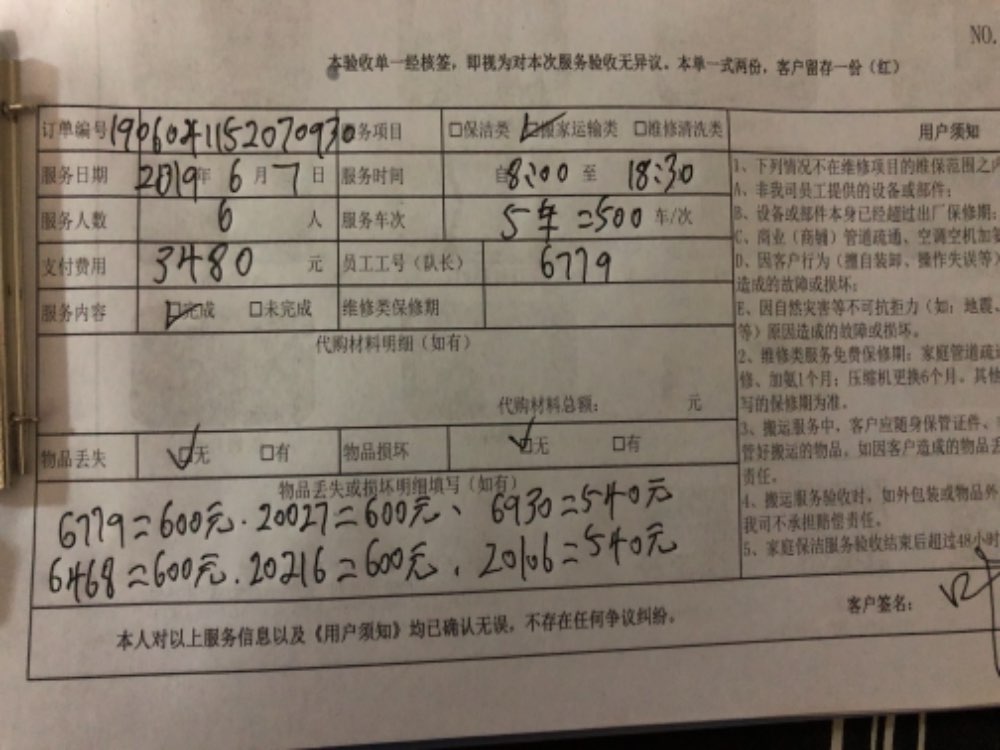 NO.
本验收单一经核签，即视为对本次服务验收无异议。本单一式两份，客户留存一份（红）
订单编号 1906041152070930 务项目 □保洁类 ☑搬家运输类 □维修清洗类
服务日期 2019年 6月 7日 服务时间 自8:00 至 18:30
服务人数 6 人 服务车次 5车=500 车/次
支付费用 3480 元 员工工号（队长） 6779
服务内容 ☑完成 □未完成 维修类保修期
代购材料明细（如有）
代购材料总额： 元
物品丢失 ☑无 □有 物品损坏 ☑无 □有
物品丢失或损坏明细填写（如有）
6779=600元.20027=600元、6930=540元
6468=600元.20216=600元.20106=540元
本人对以上服务信息以及《用户须知》均已确认无误，不存在任何争议纠纷。
用户须知
1、下列情况不在维修项目的维保范围之
A、非我司员工提供的设备或部件；
B、设备或部件本身已经超过出厂保修期；
C、商业（商铺）管道疏通、空调空机加
D、因客户行为（擅自装卸、操作失误等）
造成的故障或损坏；
E、因自然灾害等不可抗拒力（如：地震、
等）原因造成的故障或损坏。
2、维修类服务免费保修期：家庭管道疏
修、加氨1个月；压缩机更换6个月。其他
写的保修期为准。
3、搬运服务中，客户应随身保管证件、
管好搬运的物品。如因客户造成的物品丢
责任。
4、搬运服务验收时，如外包装或物品外
我司不承担赔偿责任。
5、家庭保洁服务验收结束后超过48小时
客户签名：